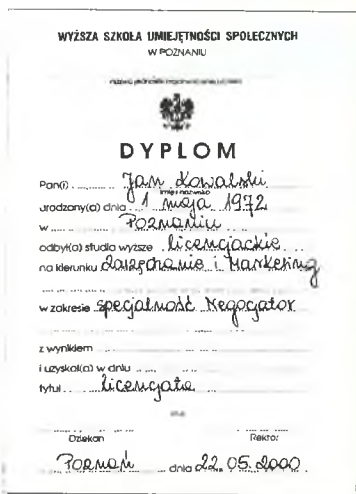 WYŻSZA SZKOŁA UMIEJĘTNOŚCI SPOŁECZNYCH
W POZNANIU
DYPLOM
Pan(i) Jan Kowalski
imię i nazwisko
urodzony(a) dnia 1 maja 1972
w Poznaniu
odbył(a) studia wyższe licencjackie
na kierunku Zarządzanie i Marketing
w zakresie specjalność Negocjator
z wynikiem
i uzyskał(a) w dniu
tytuł licencjata
Dziekan Rektor
Poznań dnia 22.05.2000